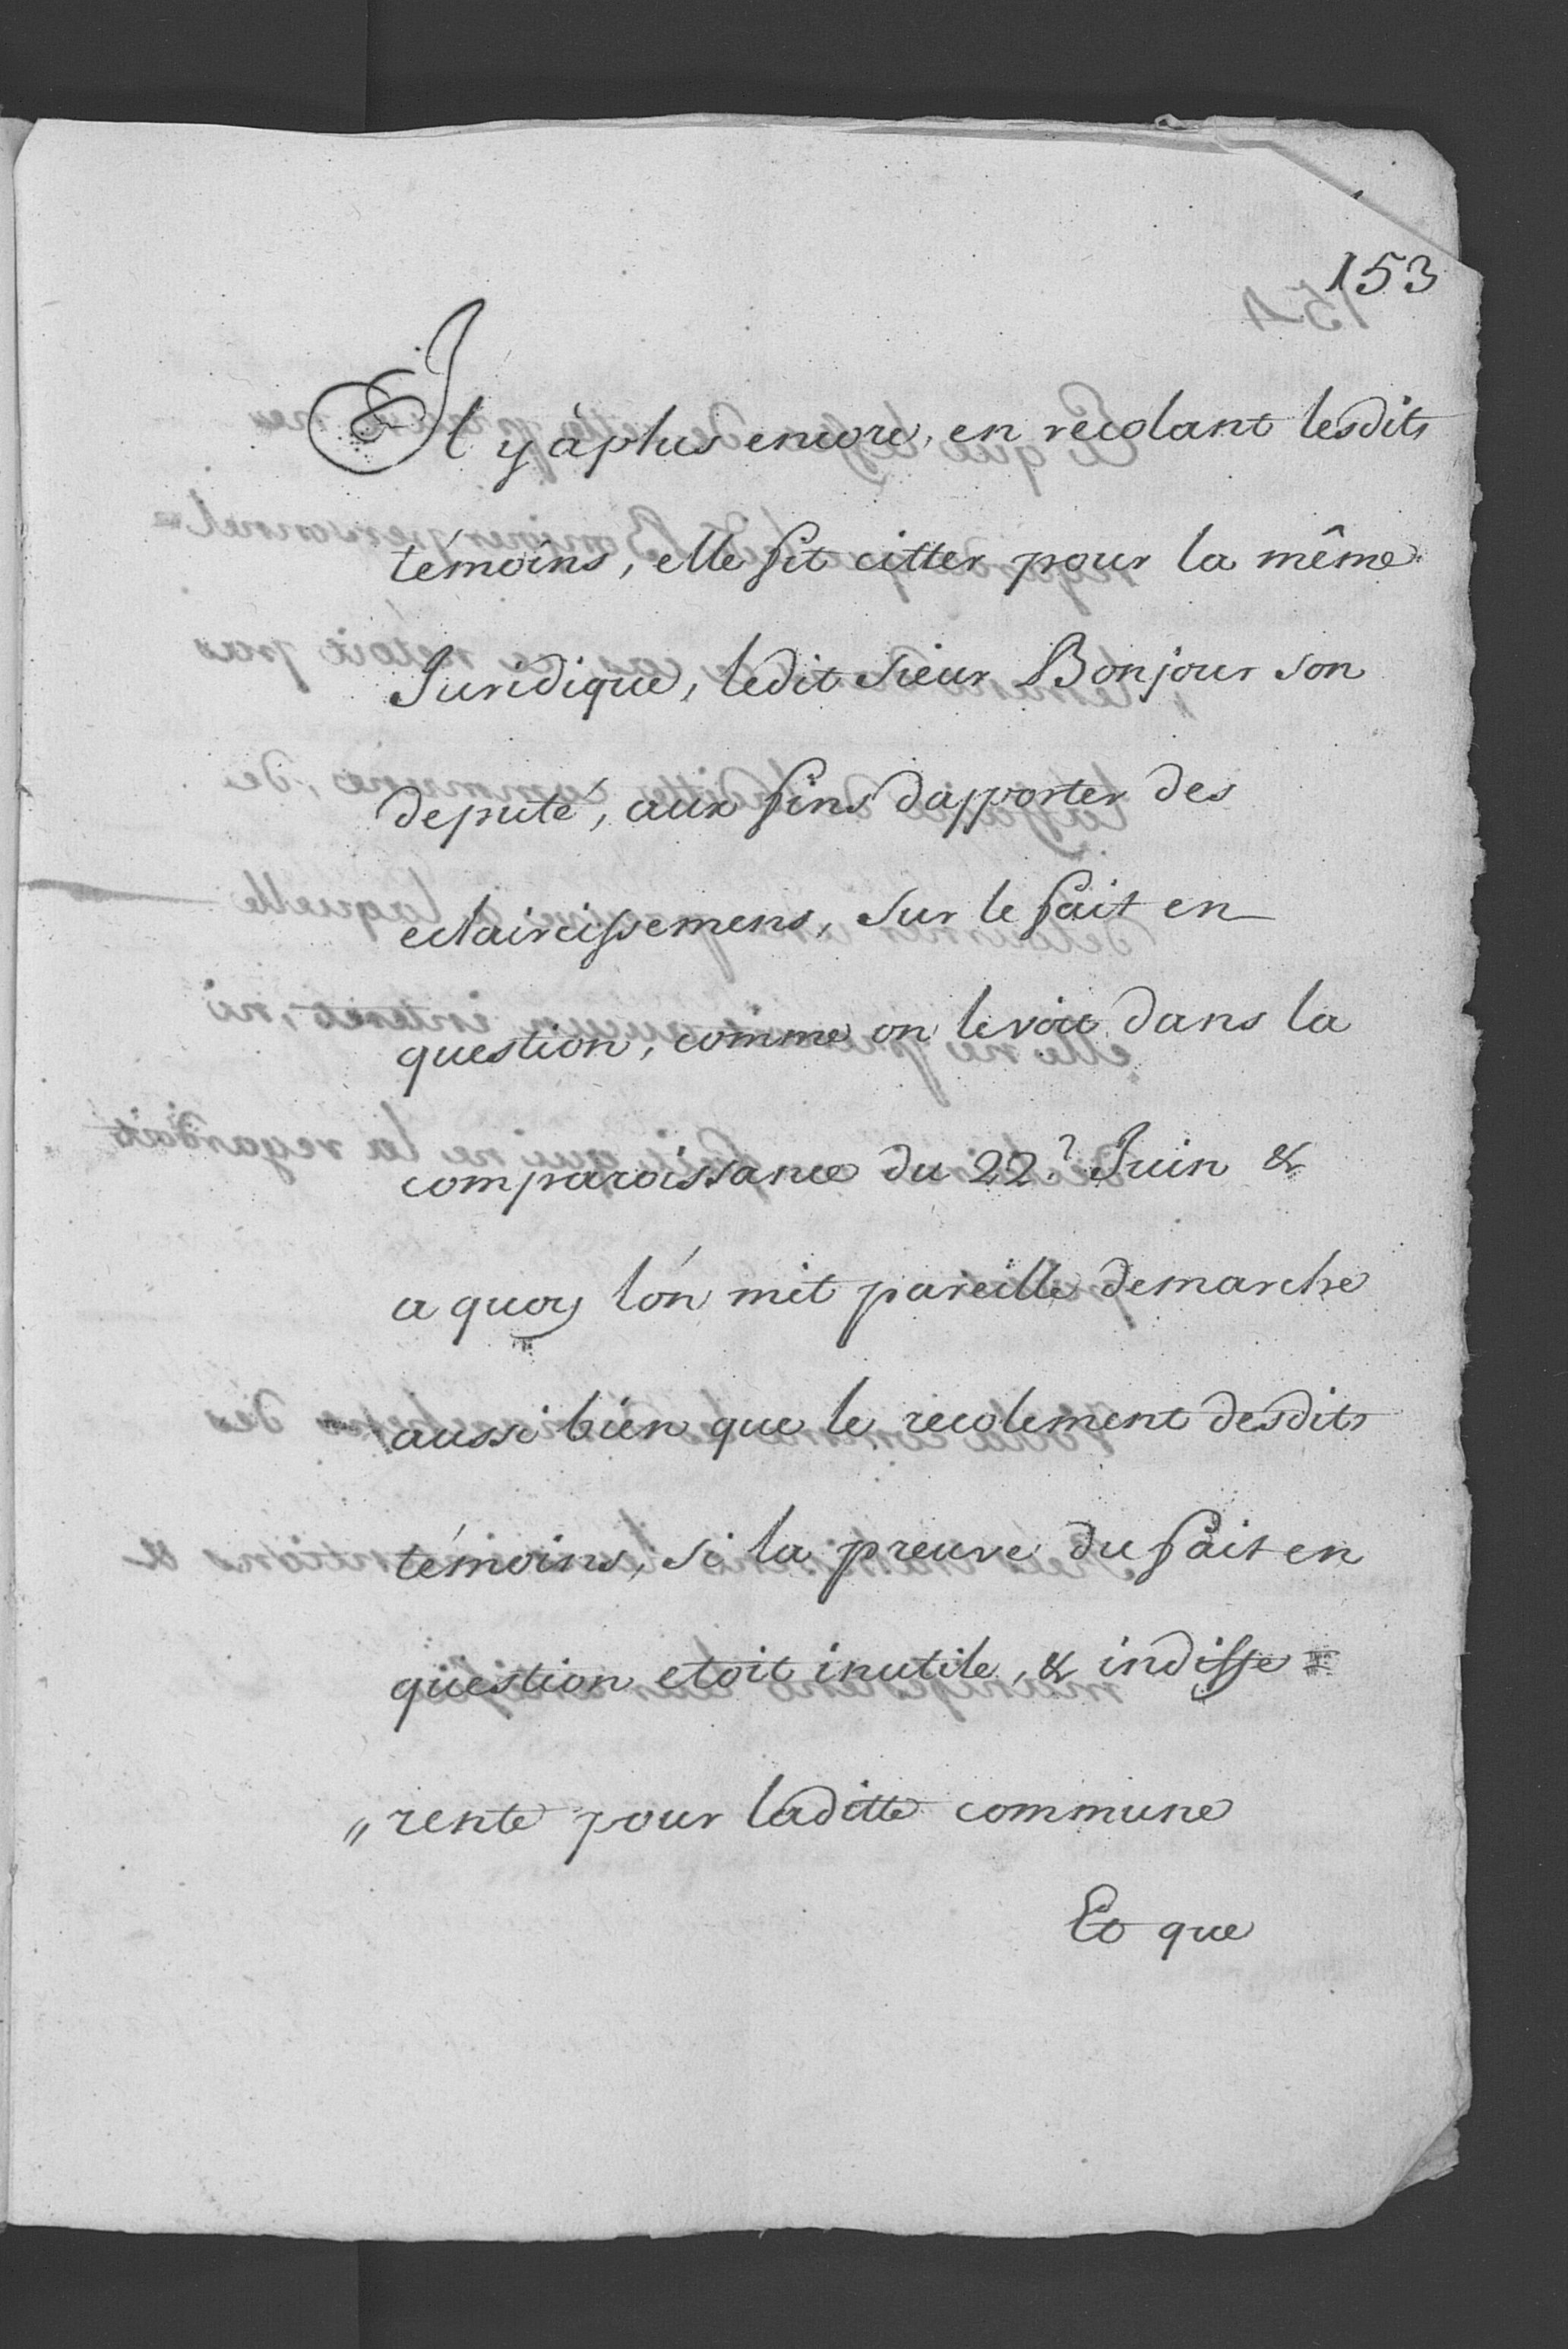 153
Il y à plus encore, en recolant lesdits
témoins, elle fit citter pour la même
Juridique, ledit Sieur Bonjour son
deputé, aux fins dapporter des
eclaircissemens, sur le fait en
question, comme on le voit dans la
comparoissance du 22.e Juin &
a quoy lón mit pareille demarche
aussi bien que le recolement desdits
témoins, si la preuve du fait en
question etoit inutile, & indiffe=
„rente pour laditte commune
Et que